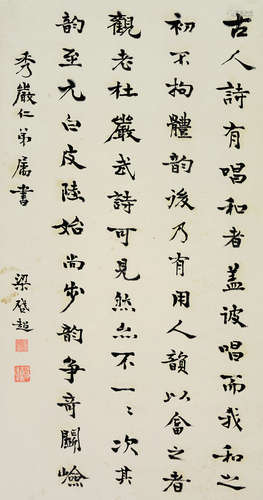 古人詩有唱和者蓋彼唱而我和之
初不拘體韻後乃有用人韻以畣之者
觀老杜嚴武詩可見然亦不一一次其
韻至元白皮陸始尚步韻爭奇鬭險
秀巖仁弟屬書
梁啟超